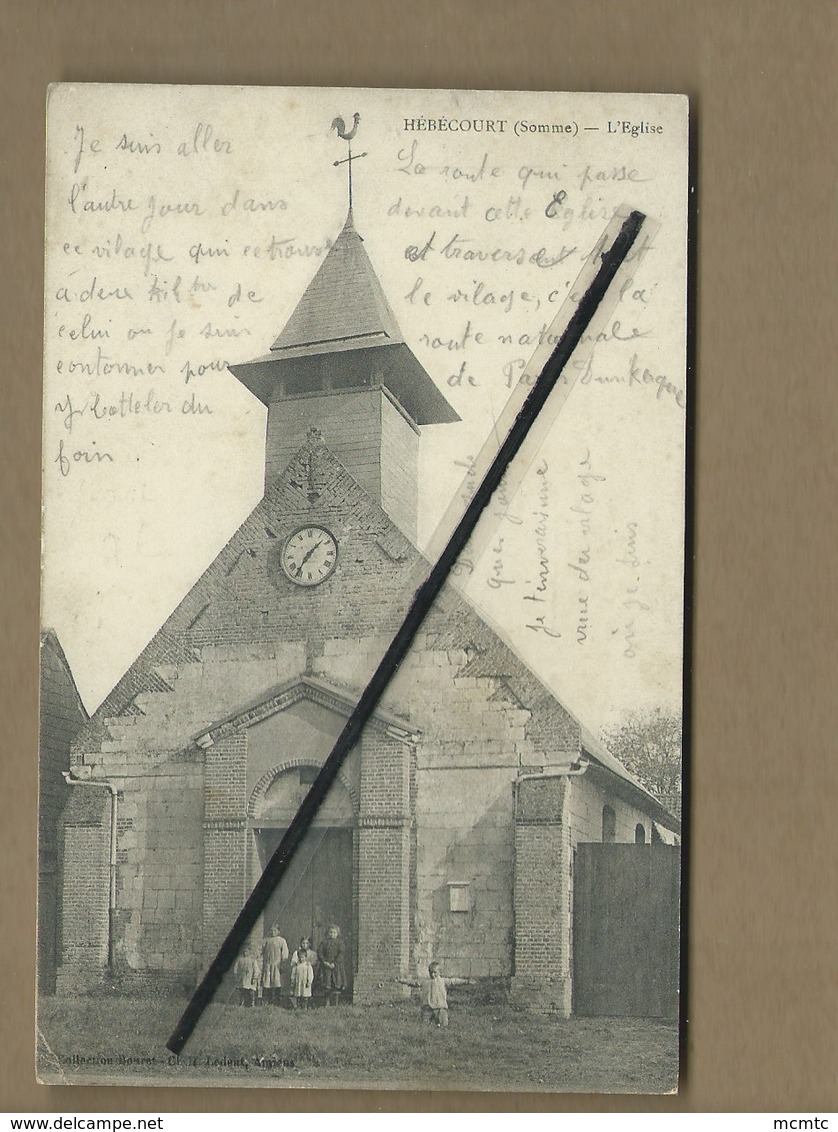 HÉBÉCOURT (Somme) — L'Eglise
Je suis aller
l'autre jour dans
ce vilage qui ce trouve
à deux de
celui ou je suis
contonner pour
y Botteler du
foin
La route qui passe
devant cette Eglise
et traversent
le vilage, c'est la
route nationale
de Paris Dunkerque
Dans
ques jours
je t'enverai une
vue du vilage
ou je suis
Collection Bouret - Cl. L. Ledent, Amiens
mcmtc